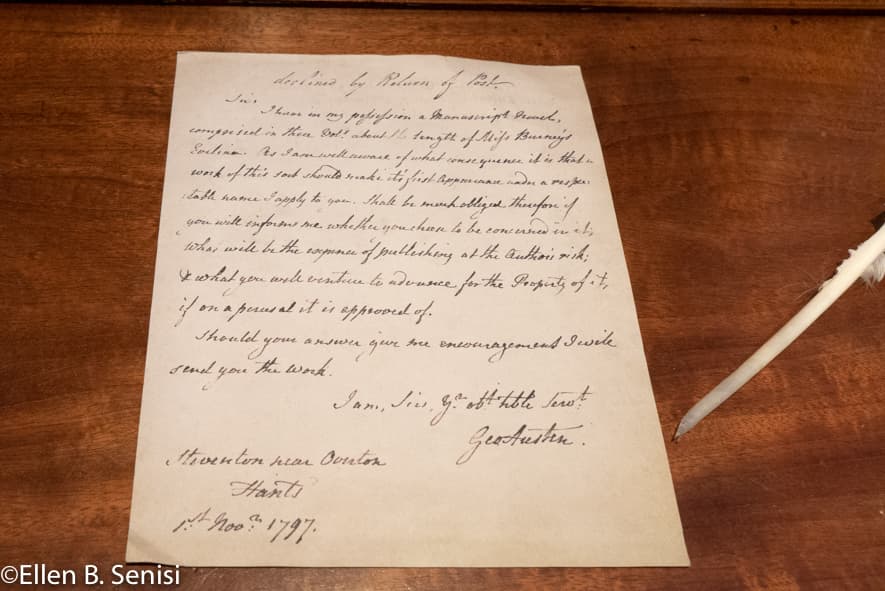 declined by Return of Post.
Sir,
I have in my possession a Manuscript Novel,
comprised in three Vols. about the length of Miss Burney's
Evelina. As I am well aware of what consequence it is that a
work of this sort should make it's first Appearance under a respec-
table name I apply to you. Shall be much obliged therefore if
you will inform me whether you chuse to be concerned in it;
what will be the expence of publishing at the Author's risk;
& what you will venture to advance for the Property of it,
if on a perusal it is approved of.
Should your answer give me encouragement I will
send you the Work.
I am, Sir, Yr. obt. hble Servt.
Geo Austen.
Steventon near Overton
Hants
1st Novr. 1797.
©Ellen B. Senisi